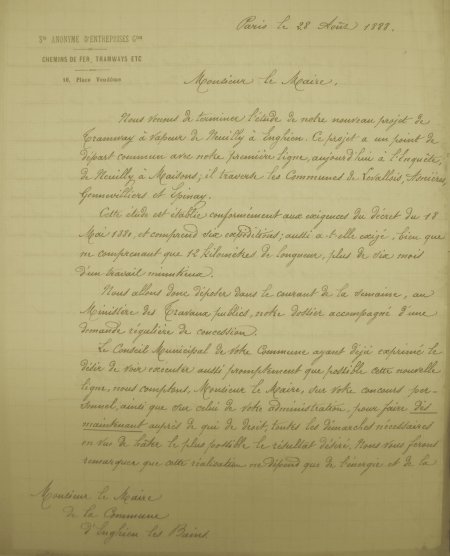 Paris le 28 Août 1888.
Sté ANONYME D'ENTREPRISES Gles
CHEMINS DE FER, TRAMWAYS ETC
16, Place Vendôme
Monsieur le Maire,
Nous venons de terminer l'étude de notre nouveau projet de
Tramway à Vapeur de Neuilly à Enghien. Ce projet a un point de
départ commun avec notre première ligne, aujourd'hui à l'Enquête,
de Neuilly à Maisons; il traverse les Communes de Levallois, Asnières,
Gennevilliers et Epinay.
Cette étude est établie conformément aux exigences du décret du 18
Mai 1881, et comprend six expéditions; aussi a-t-elle exigé, bien que
ne comprenant que 12 kilomètres de longueur, plus de six mois
d'un travail minutieux.
Nous allons donc déposer dans le courant de la semaine, au
Ministère des Travaux publics, notre dossier accompagné d'une
demande régulière de concession.
Le Conseil Municipal de votre Commune ayant déjà exprimé le
désir de voir exécuter aussi promptement que possible cette nouvelle
ligne, nous comptons, Monsieur le Maire, sur votre concours per-
sonnel, ainsi que sur celui de votre administration, pour faire dès
maintenant auprès de qui de droit, toutes les démarches nécessaires
en vue de hâter le plus possible le résultat désiré. Nous vous ferons
remarquer que cette réalisation ne dépend que de l'énergie et de la
Monsieur le Maire
de la Commune
d'Enghien les Bains.